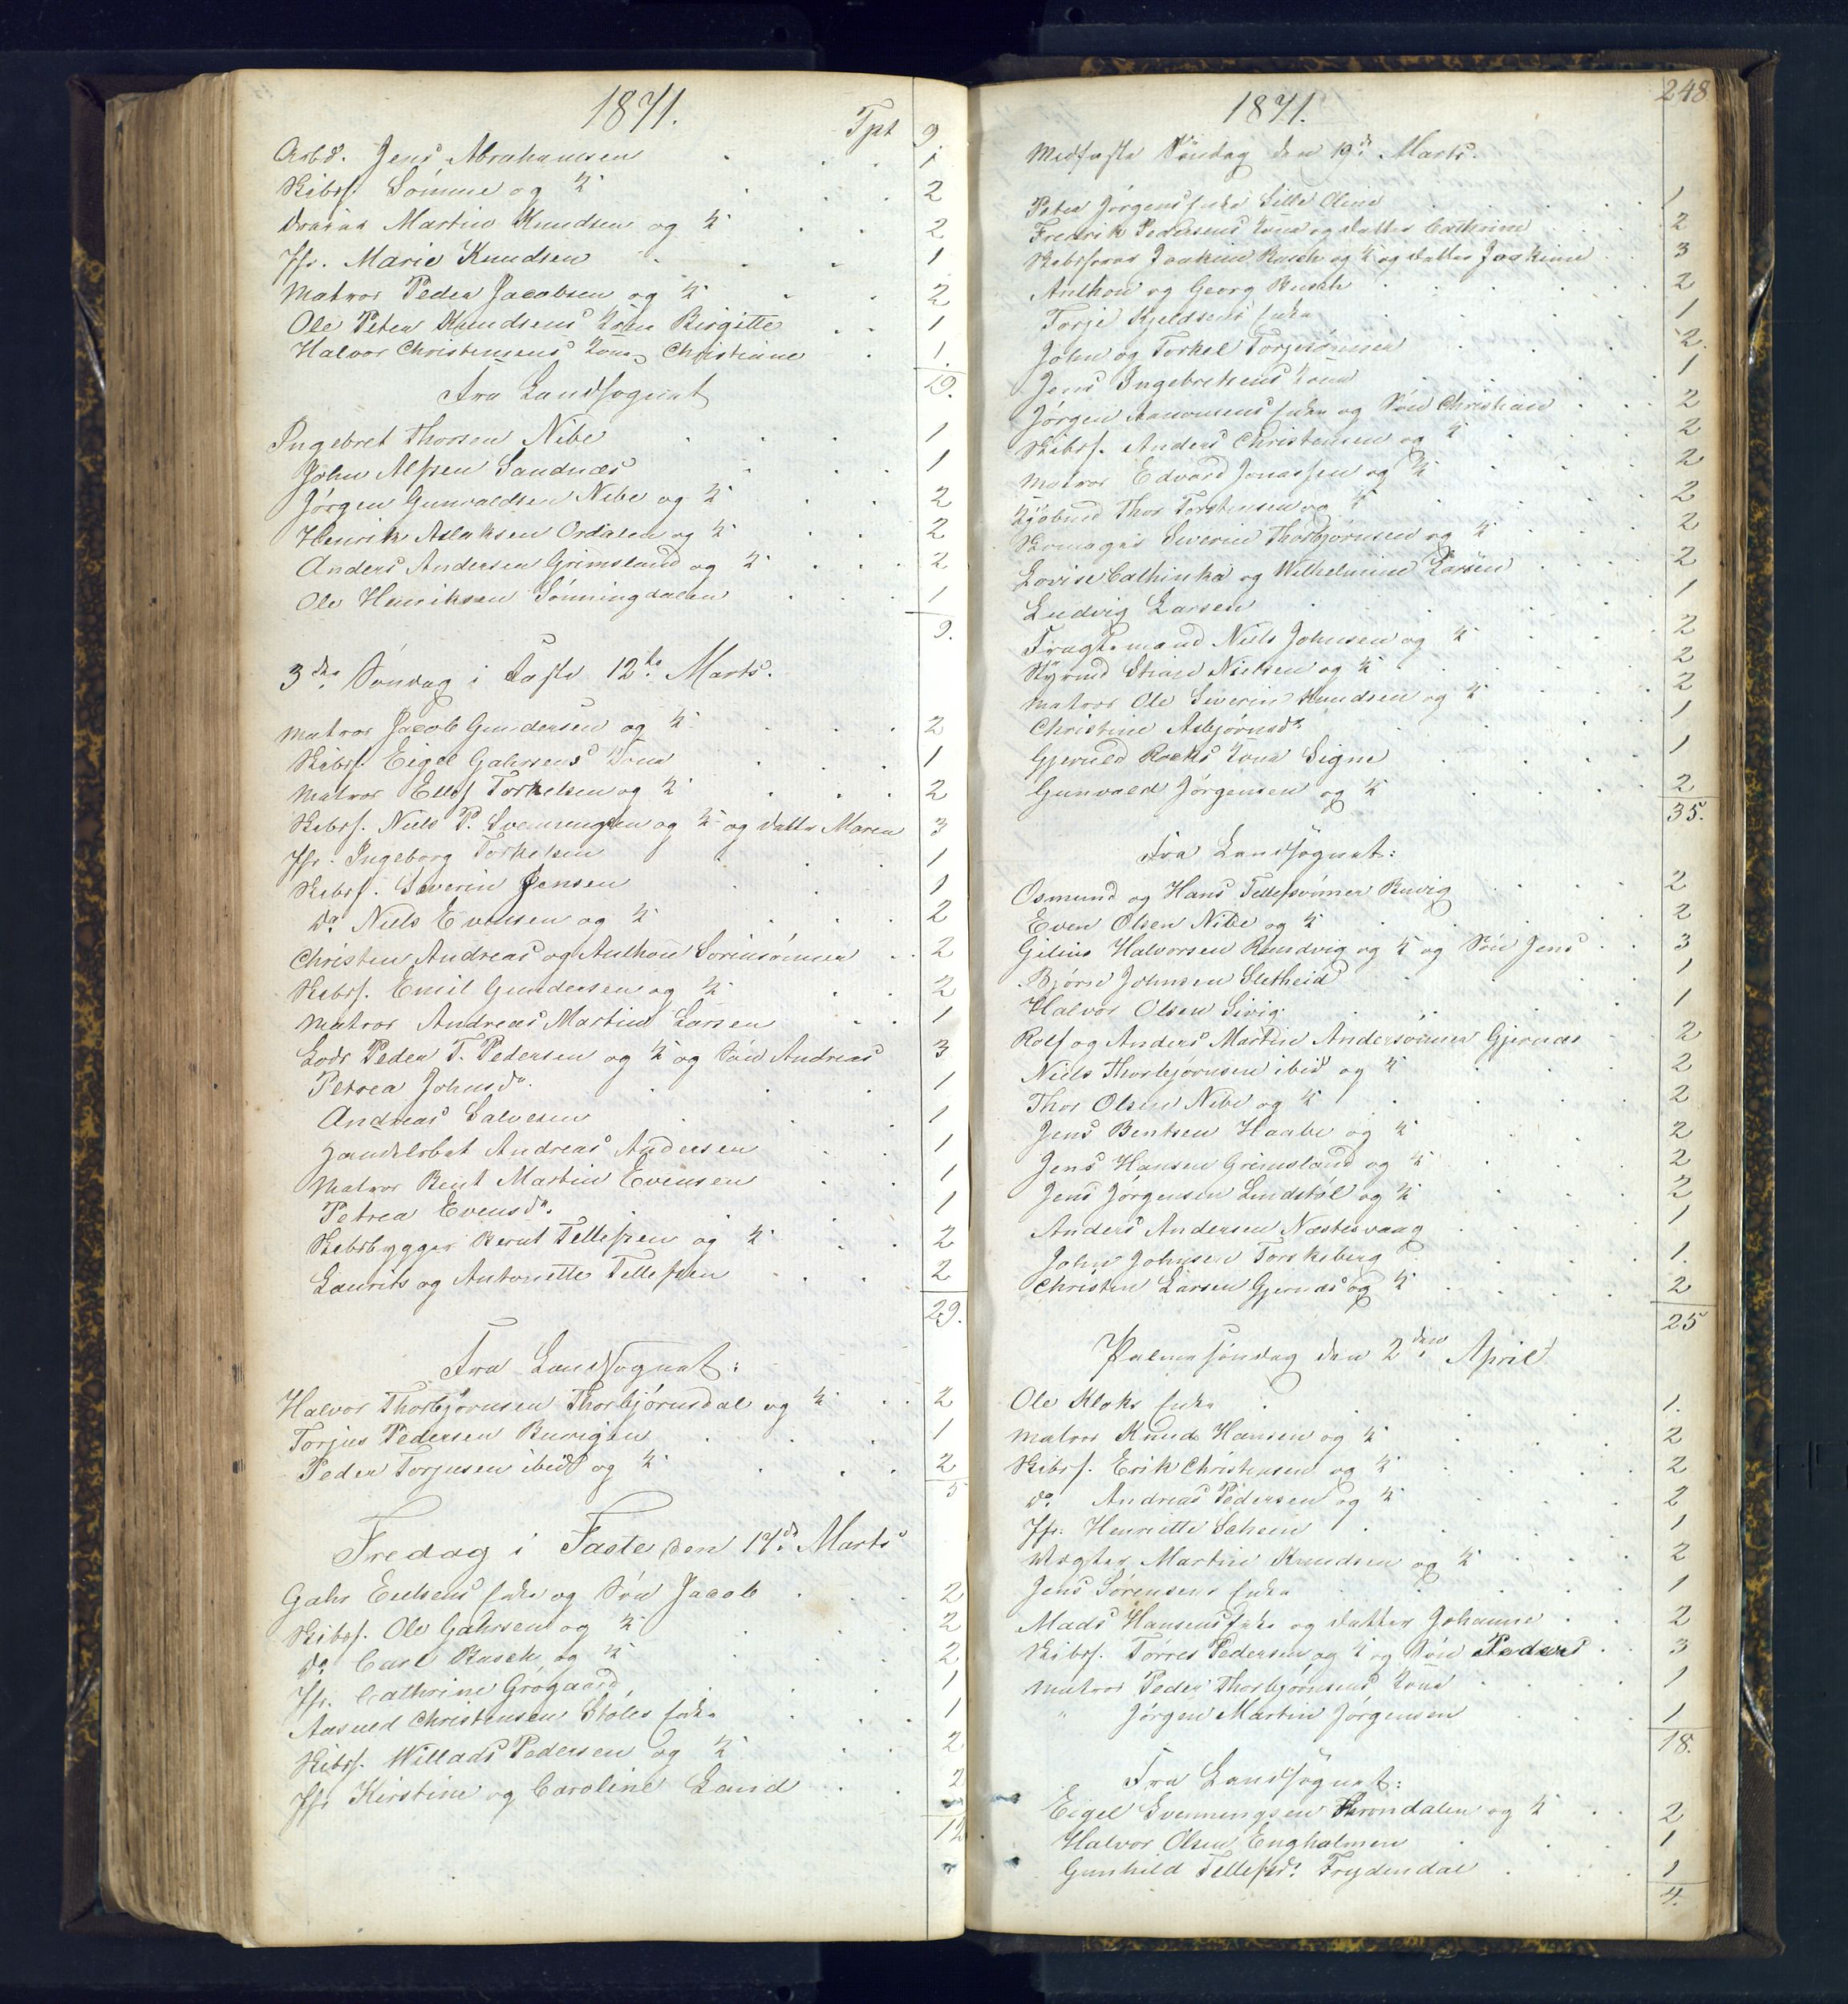 1871.
Tpt 9.
Arbd. Jens Abrahamsen 1
Skibsf. Sømme og K. 2
Martin Knudsen og K. 2
Jfr. Marie Knudsen 1
Matros Peder Jacobsen og K. 2
Ole Peter Knudsens Kone Birgitte 1
Halvor Christensens Kone Christiane 1.
19.
Fra Landsognet
Ingebret Thorsen Nibe 1
John Alfsen Sandnæs 1
Jørgen Gunvaldsen Nibe og K. 2
Henrik Aslaksen Ordalen og K. 2
Anders Andersen Grimsland og K. 2
Ole Henriksen Sønningdalen 1
9.
3die Søndag i Faste 12te Marts.
Matros Jacob Gundersen og K. 2
Skibsf. Eigel Gahrsens Kone 1
Matros Ellef Torkelsen og K. 2
Skibsf. Niels P. Svenningsen og K. og Datter Maren 3
Jfr. Ingeborg Torkelsen 1
Skibsf. Severin Jensen 1
Do. Niels Evensen og K. 2
Christen Andreas og Anthon Sørensønner 2
Skibsf. Emil Gundersen og K. 2
Matros Andreas Martin Larsen 1
Lods Peder T. Pedersen og K. og Søn Andreas 3
Petrea Johnsdr. 1
Andreas Salvesen 1
Handelsbet Andreas Andersen 1
Matros Bent Martin Evensen 1
Petrea Evensdr. 1
Skibsbygger Bernt Tellefsen og K. 2
Laurits og Antonette Tellefsen 2
29.
Fra Landsognet:
Halvor Thorbjørnsen Thorbjørnsdal og K. 2
Torjus Pedersen Buvigen 1
Peder Torjusen ibid og K. 2
5
Fredag i Faste den 17de Marts
Gahr Eielsens Enke og Søn Jacob 2
Skibsf. Ole Gahrsen og K. 2
Do. Carl Rasch og K. 2
Jfr. Cathrine Grøgaard 1
Christensen Støles Enke 1
Skibsf. Willads Pedersen og K. 2
Jfr Kirstine og Caroline Lund 2
12
248
1871.
Midfaste Søndag den 19de Marts.
Peter Jørgens Enke Sille Oline 1
Fredrik Pedersens Kone og Datter Cathrine 2
Skibsfører Joakim Rasch og K og Datter Joakime 3
Anthon og Georg Rasch 2
Torje Kjeldsens Enke 1
John og Torkel Torjesønner 2.
Jens Ingebretsens Kone 1
Jørgen Aanonsens Enke og Søn Christian 2
Skibsf. Anders Christensen og K 2
Matros Edvard Jonassen og K 2
Kjøbmd Thor Torstensen og K 2
Skomager Severin Thorbjørnsen og K 2
Lovise Cathinka og Wilhelmine Larsen 2
Ludvig Larsen 1
Fragtemand Niels Johnsen og K 2
Styrmd Stian Nielsen og K 2
Matros Ole Severin Knudsen og K 2
Christine Asbjørnsdr 1
Gjeruld Rocks Kone Signe 1
Gunvald Jørgensen og K 2
35.
Fra Landsognet:
Osmund og Hans Tellefsønner Buvig 2
Even Olsen Nibe og K 2
Gilius Halvorsen Randvig og K og Søn Jens 3
Bjørn Johnsen Sletheid 1
Halvor Olsen Sivig 1
Rolf og Anders Martin Andersønner Gjernæs 2
Niels Thorbjørnsen ibid og K 2
Thor Olsen Nibe og K 2
Jens Bentsen Haabe og K 2
Jens Hansen Grimsland og K 2
Jens Jørgensen Lindstøl og K 2
Anders Andersen Næstesvaag 1
John Johnsen Torskeberg 1.
Christen Larsen Gjernæs og K 2
25
Palmesøndag den 2den April
Ole Kloks Enke 1.
Matros Knud Hansen og K 2
Skibsf. Erik Christensen og K 2
Do. Andreas Pedersen og K 2
Jfr. Henriette Schein 1
Vægter Martin Knudsen og K 2
Jens Sørensens Enke 1
Mads Hansens Enke og Datter Johanne 2
Skibsf. Torres Pedersen og K og Søn Peder 3
Matros Peder Thorbjørnsens Kone 1
" Jørgen Martin Jørgensen 1
18.
Fra Landsognet:
Eigel Svenningsen Throndalen og K 2
Halvor Olsen Engholmen 1
Gunhild Tellefsdr. Frydendal 1
4.